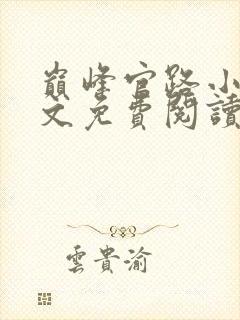 巔峰官路小
文免費閱讀
雲貴渝